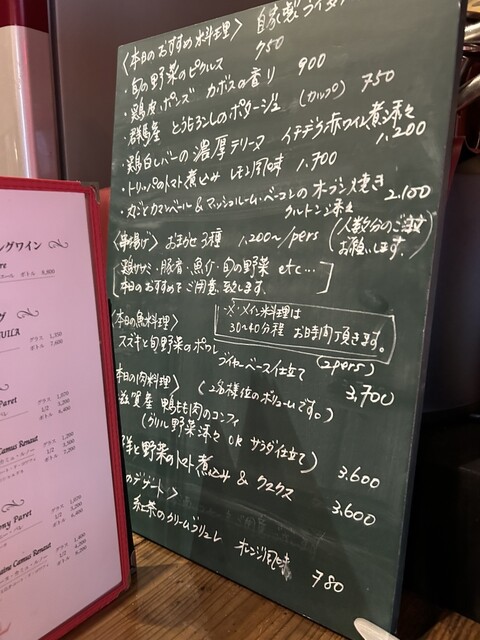 〈本日のおすすめ料理〉 自家製
・旬の野菜のピクルス 750
・鶏皮ポンズ カボスの香り 900
群馬産 とうもろこしのポタージュ (カップ) 750
・鶏白レバーの濃厚テリーヌ イチヂク赤ワイン煮添え 1,200
・トリッパのトマト煮込み レモン風味 1,700
・丸ごとカマンベール&マッシュルーム・ベーコンのオーブン焼き
クルトン添え 2,100
〈串揚げ〉 おまかせ3種 1,200〜/pers (人数分のご注文
お願いします.)
鶏ササミ・豚肩・魚介・旬の野菜 etc...
本日のおすすめでご用意致します.
※メイン料理は
30〜40分程 お時間頂きます。
本日の魚料理〉
スズキと旬野菜のポワレ
ブイヤベース仕立て (2pers) 3,700
本日の肉料理〉 (2名様位のボリュームです。)
滋賀産 鴨もも肉のコンフィ
(グリル野菜添え OR サラダ仕立て) 3.600
羊と野菜のトマト煮込み & クスクス 3.600
のデザート〉
紅茶のクリームブリュレ オレンジ風味 780
ングワイン
ボトル 6,800
グ
UILA
グラス 1,350
ボトル 7,600
Paret
グラス 1,070
1/2 3,200
ボトル 6,400
Camus Renaut
グラス 1,200
1/2 3,500
ボトル 7,200
my Paret
グラス 1,070
1/2 3,200
ボトル 6,400
aine Camus Renaut
グラス
1/2
ボトル